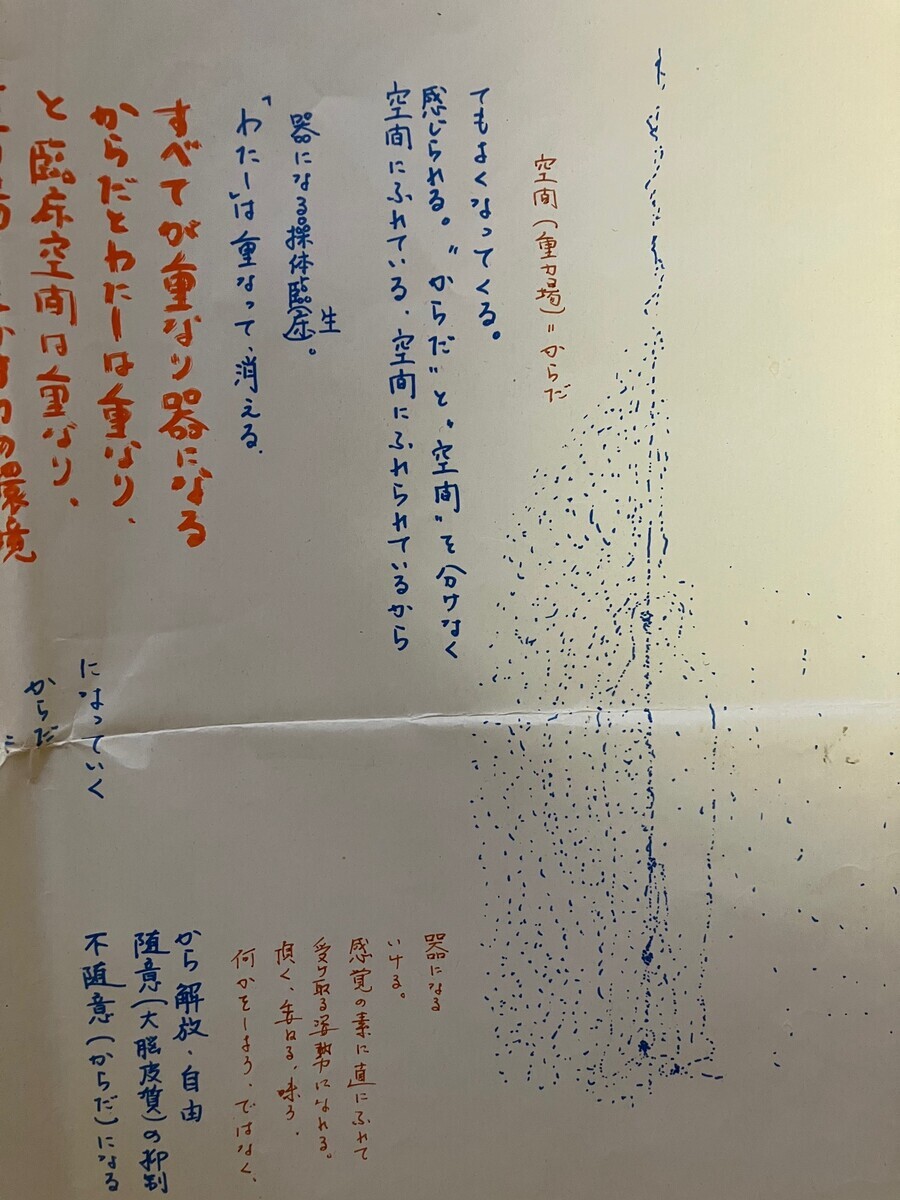 環境
と臨床空間は重なり、
からだとわたしは重なり、
すべてが重なり器になる
「わたし」は重なって、消える。
器になる操体臨床。
生
空間にふれている、空間にふれられているから
感じられる。“からだ”と“空間”を分けなく
てもよくなってくる。
空間(重力場)=からだ
からだ
になっていく
不随意(からだ)になる
随意(大脳皮質)の抑制
から解放、自由
何かをしよう、ではなく、
頂く、委ねる、味う、
受け取る姿勢になれる。
感覚の素に直にふれて
いける。
器になる